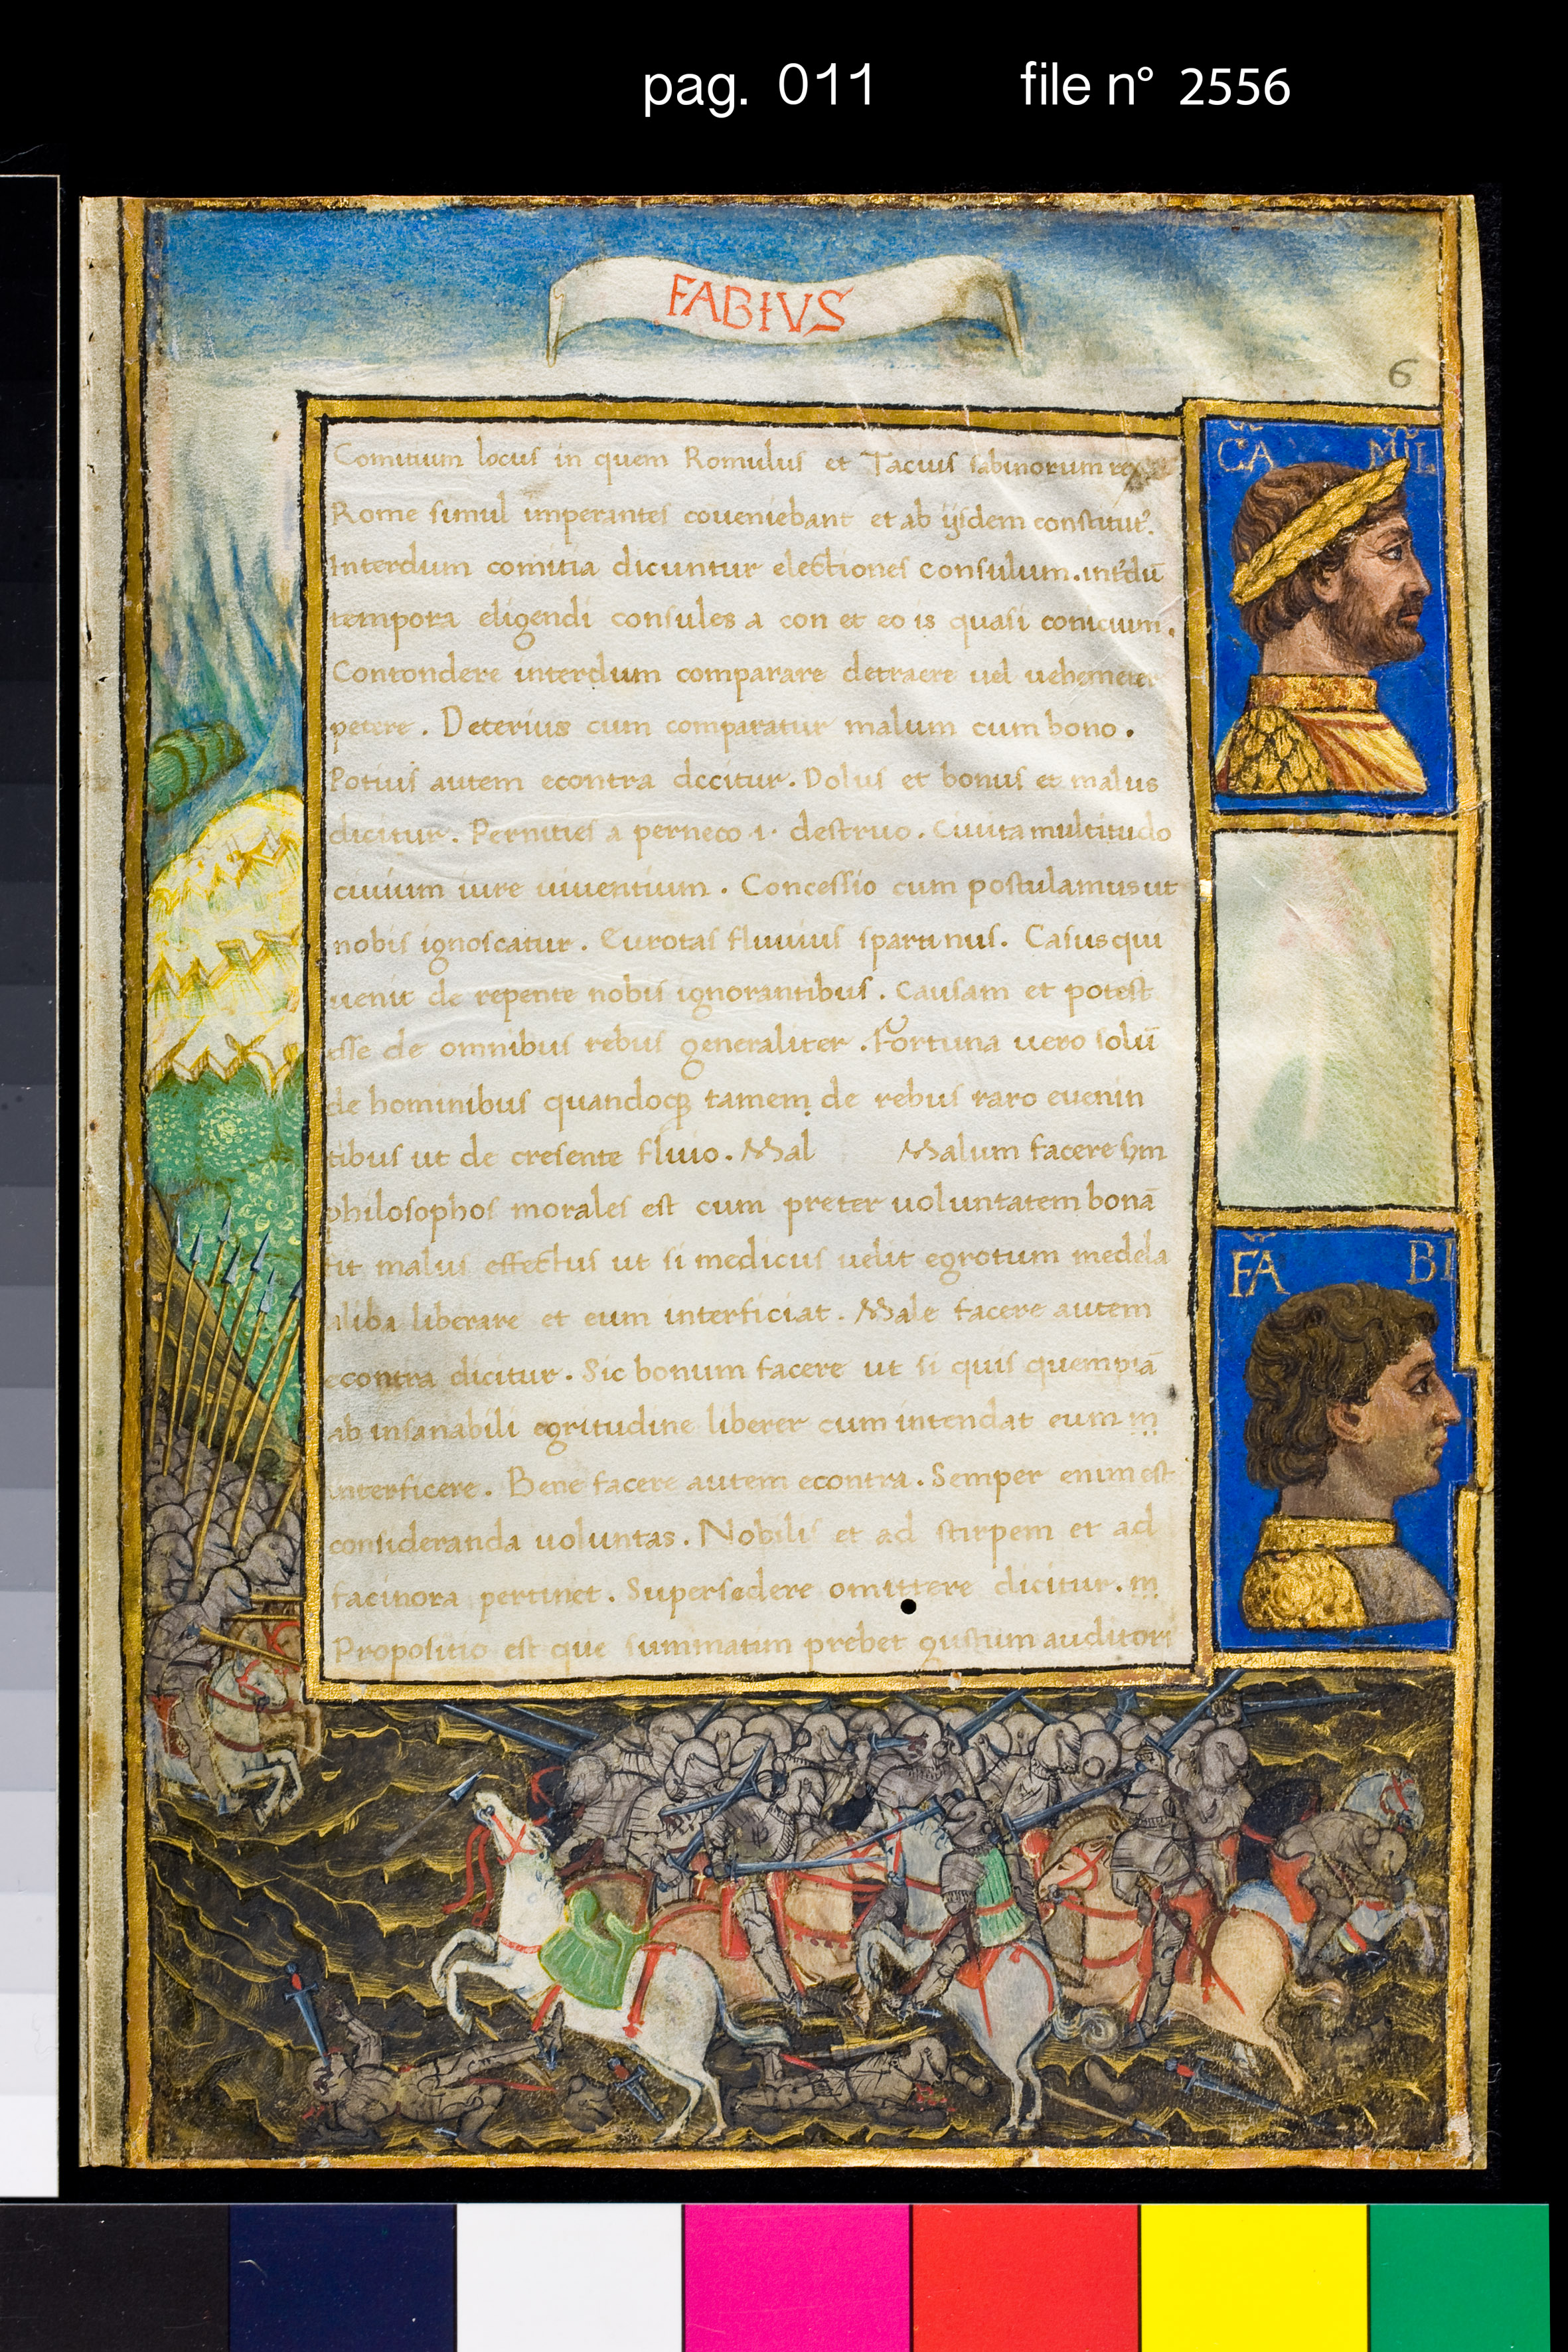 pag. 011 file n° 2556
FABIVS
6
CA MIL
Comitium locus in quem Romulus et Tacius sabinorum rex
Rome simul imperantes coueniebant et ab ijsdem constitut?.
Interdum comitia dicuntur electiones consulum. int'dū
tempora eligendi consules a con et eo is quasi comicium.
Contondere interdum comparare detraere uel uehemeter
petere. Deterius cum comparatur malum cum bono.
Potius autem econtra dccitur. Dolus et bonus et malus
dicitur. Pernities a perneco .i. destruo. Ciuita multitudo
ciuium iure uiuentium. Concessio cum postulamus ut
nobis ignoscatur. Eurotas fluuius spartinus. Casus qui
uenit de repente nobis ignorantibus. Causam et potest
esse de omnibus rebus generaliter. Fortuna uero solū
de hominibus quandoq3 tamem de rebus raro euenin
tibus ut de cresente fluio. Mal Malum facere
philosophos morales est cum preter uoluntatem bonā
fit malus effectus ut si medicus uelit egrotum medela
aliba liberare et eum interficiat. Male facere autem
econtra dicitur. Sic bonum facere ut si quis quempiā
ab insanabili egritudine liberer cum intendat eum m
interficere. Bene facere autem econtra. Semper enim est
consideranda uoluntas. Nobilis et ad stirpem et ad
facinora pertinet. Supersedere omittere dicitur. m
Propositio est que summatim prebet gustum auditori
FA BI